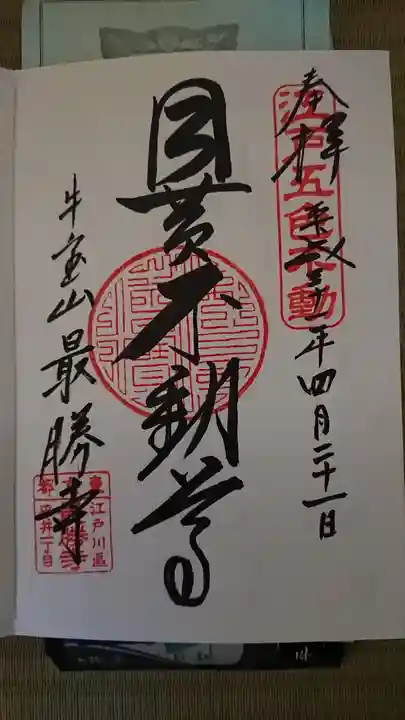 奉拝
江戸五色不動
平成三十一年四月二十一日
目黄不動尊
牛宝山最勝寺
江戸川區
平井一丁目